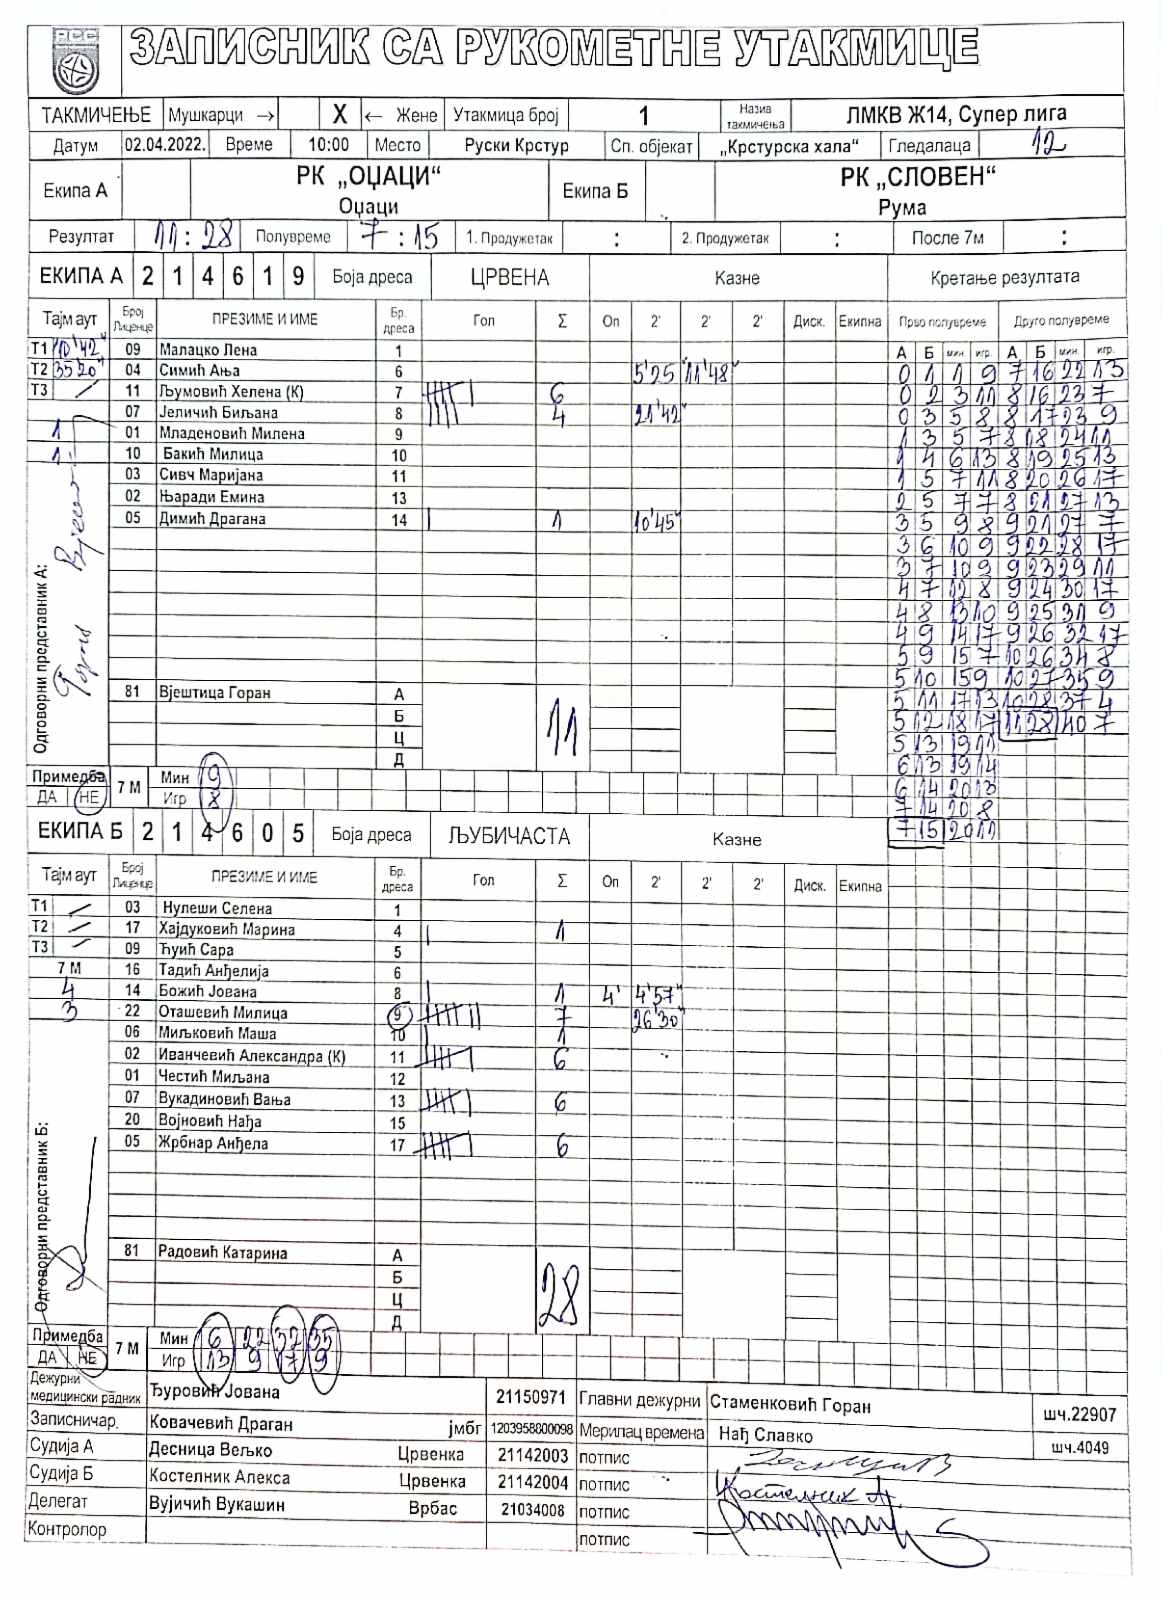 РСС
ЗАПИСНИК СА РУКОМЕТНЕ УТАКМИЦЕ
ТАКМИЧЕЊЕ Мушкарци → X ← Жене Утакмица број 1 Назив такмичења ЛМКВ Ж14, Супер лига
Датум 02.04.2022. Време 10:00 Место Руски Крстур Сп. објекат „Крстурска хала“ Гледалаца 12
Екипа А РК „ОЏАЦИ“ Оџаци Екипа Б РК „СЛОВЕН“ Рума
Резултат 11:28 Полувреме 7:15 1. Продужетак : 2. Продужетак : После 7м :
ЕКИПА А 2 1 4 6 1 9 Боја дреса ЦРВЕНА Казне Кретање резултата
Тајм аут Број Лиценце ПРЕЗИМЕ И ИМЕ Бр. дреса Гол Σ Оп 2' 2' 2' Диск. Екипна Прво полувреме Друго полувреме
А Б мин. игр. А Б мин. игр.
Т1 10'42" 09 Малацко Лена 1
0 1 1 9 7 16 22 13
Т2 35'20" 04 Симић Ања 6 5'25 11'48"
0 2 3 11 8 16 23 7
Т3 11 Љумовић Хелена (К) 7 6
0 3 5 8 8 17 23 9
07 Јеличић Биљана 8 4 21'42"
1 3 5 7 8 18 24 11
1 01 Младеновић Милена 9
1 4 6 13 8 19 25 13
1 10 Бакић Милица 10
1 5 7 11 8 20 26 17
03 Сивч Маријана 11
2 5 7 7 8 21 27 13
02 Њаради Емина 13
3 5 9 8 9 21 27 7
05 Димић Драгана 14 1 10'45"
3 6 10 9 9 22 28 17
3 7 10 9 9 23 29 11
4 7 12 8 9 24 30 17
4 8 13 10 9 25 31 9
4 9 14 17 9 26 32 17
5 9 15 7 10 26 34 8
5 10 15 9 10 27 35 9
5 11 17 13 10 28 37 4
5 12 18 17 11 28 40 7
5 13 19 11
6 13 19 14
6 14 20 13
7 14 20 8
7 15 20 11
Одговорни представник А:
81 Вјештица Горан А
Б
Ц
Д
11
Примедба ДА НЕ 7 М Мин 9
Игр 8
ЕКИПА Б 2 1 4 6 0 5 Боја дреса ЉУБИЧАСТА Казне
Тајм аут Број Лиценце ПРЕЗИМЕ И ИМЕ Бр. дреса Гол Σ Оп 2' 2' 2' Диск. Екипна
Т1 03 Нулеши Селена 1
Т2 17 Хајдуковић Марина 4 1
Т3 09 Ћуић Сара 5
7 М 16 Тадић Анђелија 6
4 14 Божић Јована 8 1 4' 4'57"
3 22 Оташевић Милица 9 7 26'30"
06 Миљковић Маша 10 1
02 Иванчевић Александра (К) 11 6
01 Честић Миљана 12
07 Вукадиновић Вања 13 6
20 Војновић Нађа 15
05 Жрбнар Анђела 17 6
Одговорни представник Б:
81 Радовић Катарина А
Б
Ц
Д
28
Примедба ДА НЕ 7 М Мин 6 22 32 35
Игр 13 9 17 9
Дежурни медицински радник Ђуровић Јована 21150971 Главни дежурни Стаменковић Горан шч.22907
Записничар. Ковачевић Драган јмбг 1203958800098 Мерилац времена Нађ Славко шч.4049
Судија А Десница Вељко Црвенка 21142003 потпис
Судија Б Костелник Алекса Црвенка 21142004 потпис Костелник А.
Делегат Вујичић Вукашин Врбас 21034008 потпис
Контролор потпис